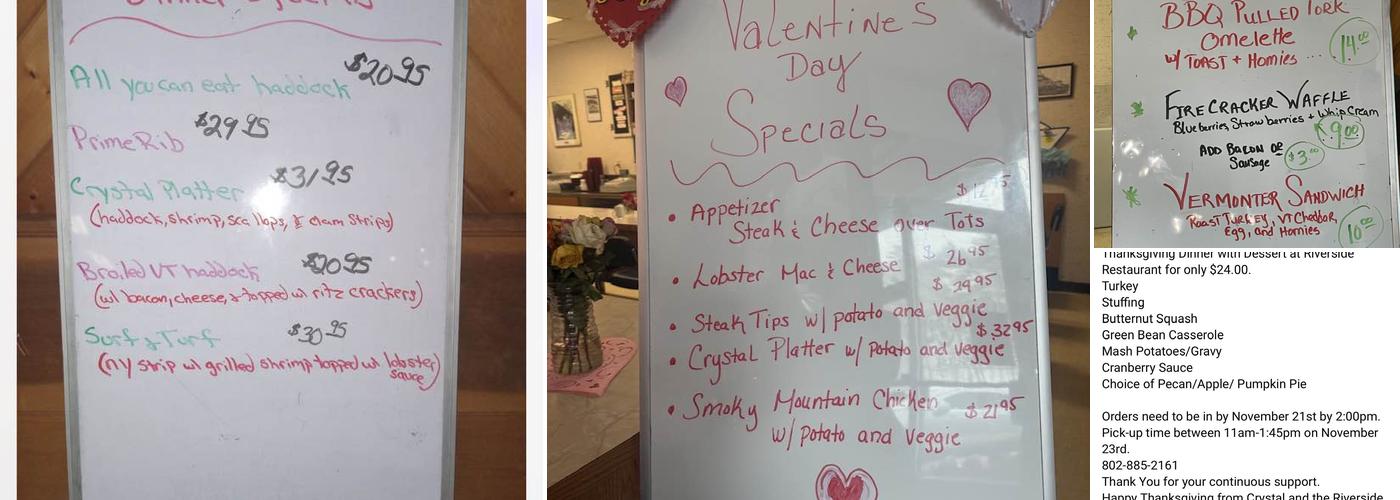 $20.95
All you can eat haddock
$29.95
Prime Rib
$31.95
Crystal Platter
(haddock, shrimp, scallops, & clam strips)
Broiled VT haddock $20.95
(w/ bacon, cheese, & topped w/ ritz crackers)
Surf & Turf $30.95
(ny strip w/ grilled shrimp topped w/ lobster
sauce)
Valentine's
Day
Specials
• Appetizer
Steak & Cheese over Tots
$ 26.95
• Lobster Mac & Cheese
$ 29.95
• Steak Tips w/ potato and Veggie
$ 32.95
• Crystal Platter w/ Potato and Veggie
• Smoky Mountain Chicken $21.95
w/ Potato and Veggie
BBQ Pulled Pork
Omelette
w/ Toast + Homies ... 14.00
Firecracker Waffle
Blueberries, Strawberries + Whip Cream
$9.00
Add Bacon or
Sausage $3.00
Vermonter Sandwich
Roast Turkey, VT Cheddar,
Egg, and Homies 10.00
Thanksgiving Dinner with Dessert at Riverside
Restaurant for only $24.00.
Turkey
Stuffing
Butternut Squash
Green Bean Casserole
Mash Potatoes/Gravy
Cranberry Sauce
Choice of Pecan/Apple/ Pumpkin Pie
Orders need to be in by November 21st by 2:00pm.
Pick-up time between 11am-1:45pm on November
23rd.
802-885-2161
Thank You for your continuous support.
Happy Thanksgiving from Crystal and the Riverside